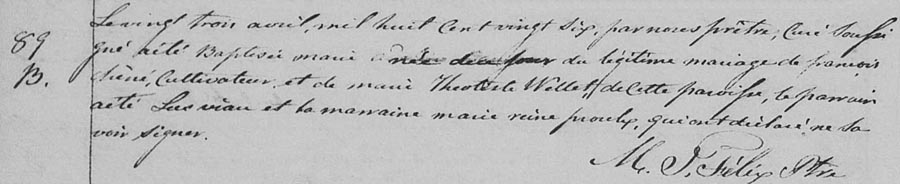 89
B.
Le vingt trois avril, mil huit cent vingt six, par nous prêtre, Curé Soussi
gné a été Baptisée marie née du du légitime mariage de françois
chêné, Cultivateur, et de marie Theotiste Willet, de cette paroisse, le parrain
a été Luc viau et la marraine marie reine proulx, qui ont déclaré ne sa
voir signer.
M. J. Félix Ptre